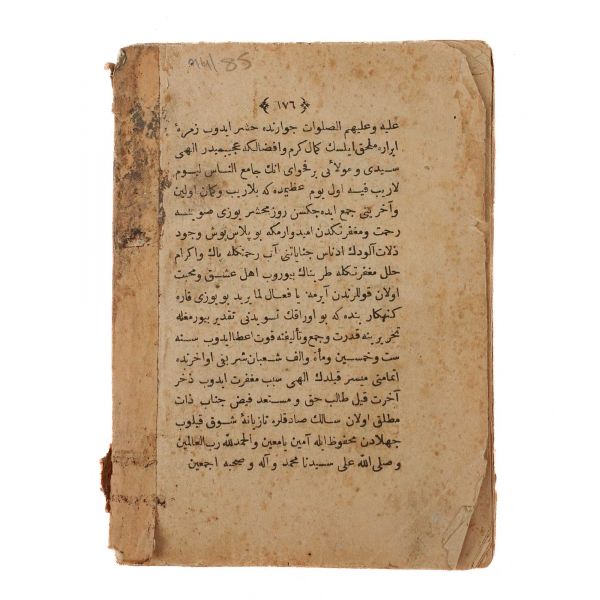 914/85
﴿١٧٦﴾
عليه وعليهم الصلوات جوارنده حشر ايدوب زمرۀ
ابراره ملحق ايلسك كمال كرم وافضالكه عجيبميدر الهى
سيدى و مولائى بر فحواى انك جامع الناس ليوم
لاريب فيه اول يوم عظيمده كه بلاريب وكمان اولين
وآخرينى جمع ايده جكسن روز محشر يوزى صوينه
رحمت و مغفرتكدن اميدوارمكه بو پلاس پوش وجود
ذلات آلودك ادناس جناياتنى آب رحمتكله پاك واكرام
حلل مغفرتكله طربناك بيوروب اهل عشق ومحبت
اولان قوللرندن آيرمه يا فعال لما يريد بو يوزى قاره
كنهكار بنده كه بو اوراقك تسويدنى تقدير بيورمغله
تحريرينه قدرت و جمع وتأليفنه قوت اعطا ايدوب سنه
ست وخمسين ومأه والف شعبان شريفى اواخرنده
اتمامنى ميسر قيلدك الهى سبب مغفرت ايدوب ذخر
آخرت قيل طالب حق و مستعد فيض جناب ذات
مطلق اولان سالك صادقلره تازيانۀ شوق قيلوب
جهلادن محفوظ ايله آمين يامعين والحمد لله رب العالمين
و صلى الله على سيدنا محمد و آله و صحبه اجمعين